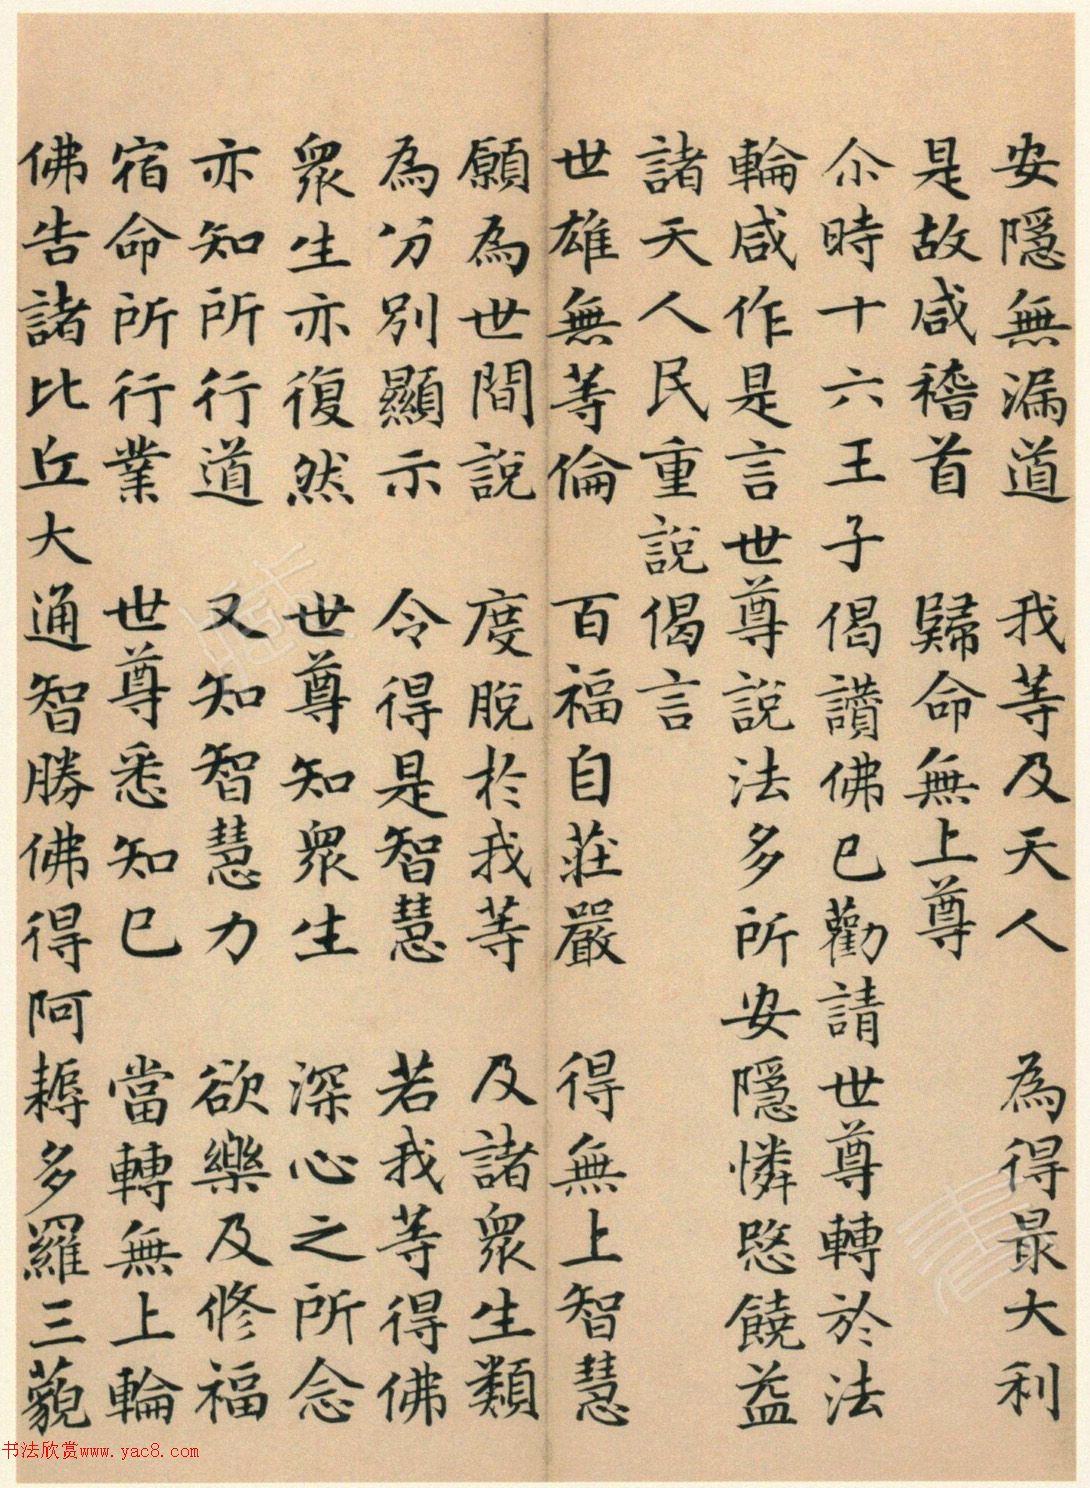 安隱無漏道　我等及天人　為得最大利
是故咸稽首　歸命無上尊
尒時十六王子偈讚佛已勸請世尊轉於法
輪咸作是言世尊說法多所安隱憐愍饒益
諸天人民重說偈言
世雄無等倫　百福自莊嚴　得無上智慧
願為世間說　度脫於我等　及諸衆生類
為分別顯示　令得是智慧　若我等得佛
衆生亦復然　世尊知衆生　深心之所念
亦知所行道　又知智慧力　欲樂及修福
宿命所行業　世尊悉知已　當轉無上輪
佛告諸比丘大通智勝佛得阿耨多羅三藐
书法欣赏www.yac8.com